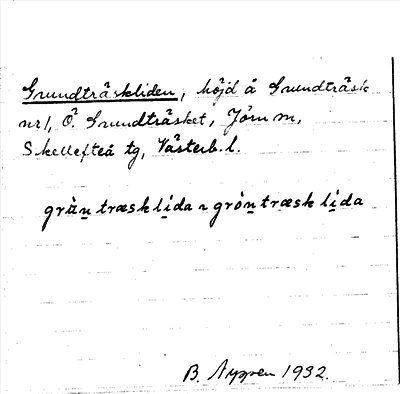 Grundträskliden, höjd å Grundträsk
nr 1, Ö. Grundträsket, Jörn m,
Skellefteå tg, Västerb. l.
gràn træsk lida ~ gròn træsk lida
B. 1932.